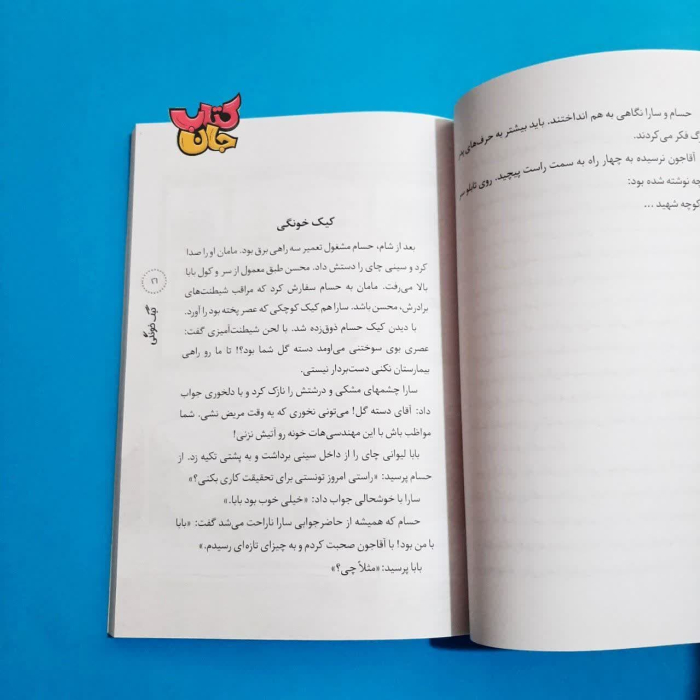 کتاب
جان
حسام و سارا نگاهی به هم انداختند. باید بیشتر به حرف‌های
فکر می‌کردند.
آقاجون نرسیده به چهار راه به سمت راست پیچید. روی تابلو
نوشته شده بود:
کوچه شهید ...
کیک خونگی
بعد از شام، حسام مشغول تعمیر سه راهی برق بود. مامان او را صدا
کرد و سینی چای را دستش داد. محسن طبق معمول از سر و کول بابا
بالا می‌رفت. مامان به حسام سفارش کرد که مراقب شیطنت‌های
برادرش، محسن باشد. سارا هم کیک کوچکی که عصر پخته بود را آورد.
با دیدن کیک حسام ذوق‌زده شد. با لحن شیطنت‌آمیزی گفت:
عصری بوی سوختنی می‌اومد دسته گل شما بود؟! تا ما رو راهی
بیمارستان نکنی دست‌بردار نیستی.
سارا چشمهای مشکی و درشتش را نازک کرد و با دلخوری جواب
داد: آقای دسته گل! می‌تونی نخوری که یه وقت مریض نشی. شما
مواظب باش با این مهندسی‌هات خونه رو آتیش نزنی!
بابا لیوانی چای را از داخل سینی برداشت و به پشتی تکیه زد. از
حسام پرسید: «راستی امروز تونستی برای تحقیقت کاری بکنی؟»
سارا با خوشحالی جواب داد: «خیلی خوب بود بابا.»
حسام که همیشه از حاضرجوابی سارا ناراحت می‌شد گفت: «بابا
با من بود! با آقاجون صحبت کردم و به چیزای تازه‌ای رسیدم.»
بابا پرسید: «مثلاً چی؟»
کیک خونگی